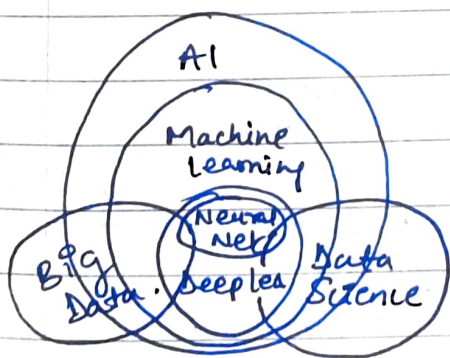 AI
Machine
Learning
Neural
Net
Big
Data.
Deeplea
Data
Science